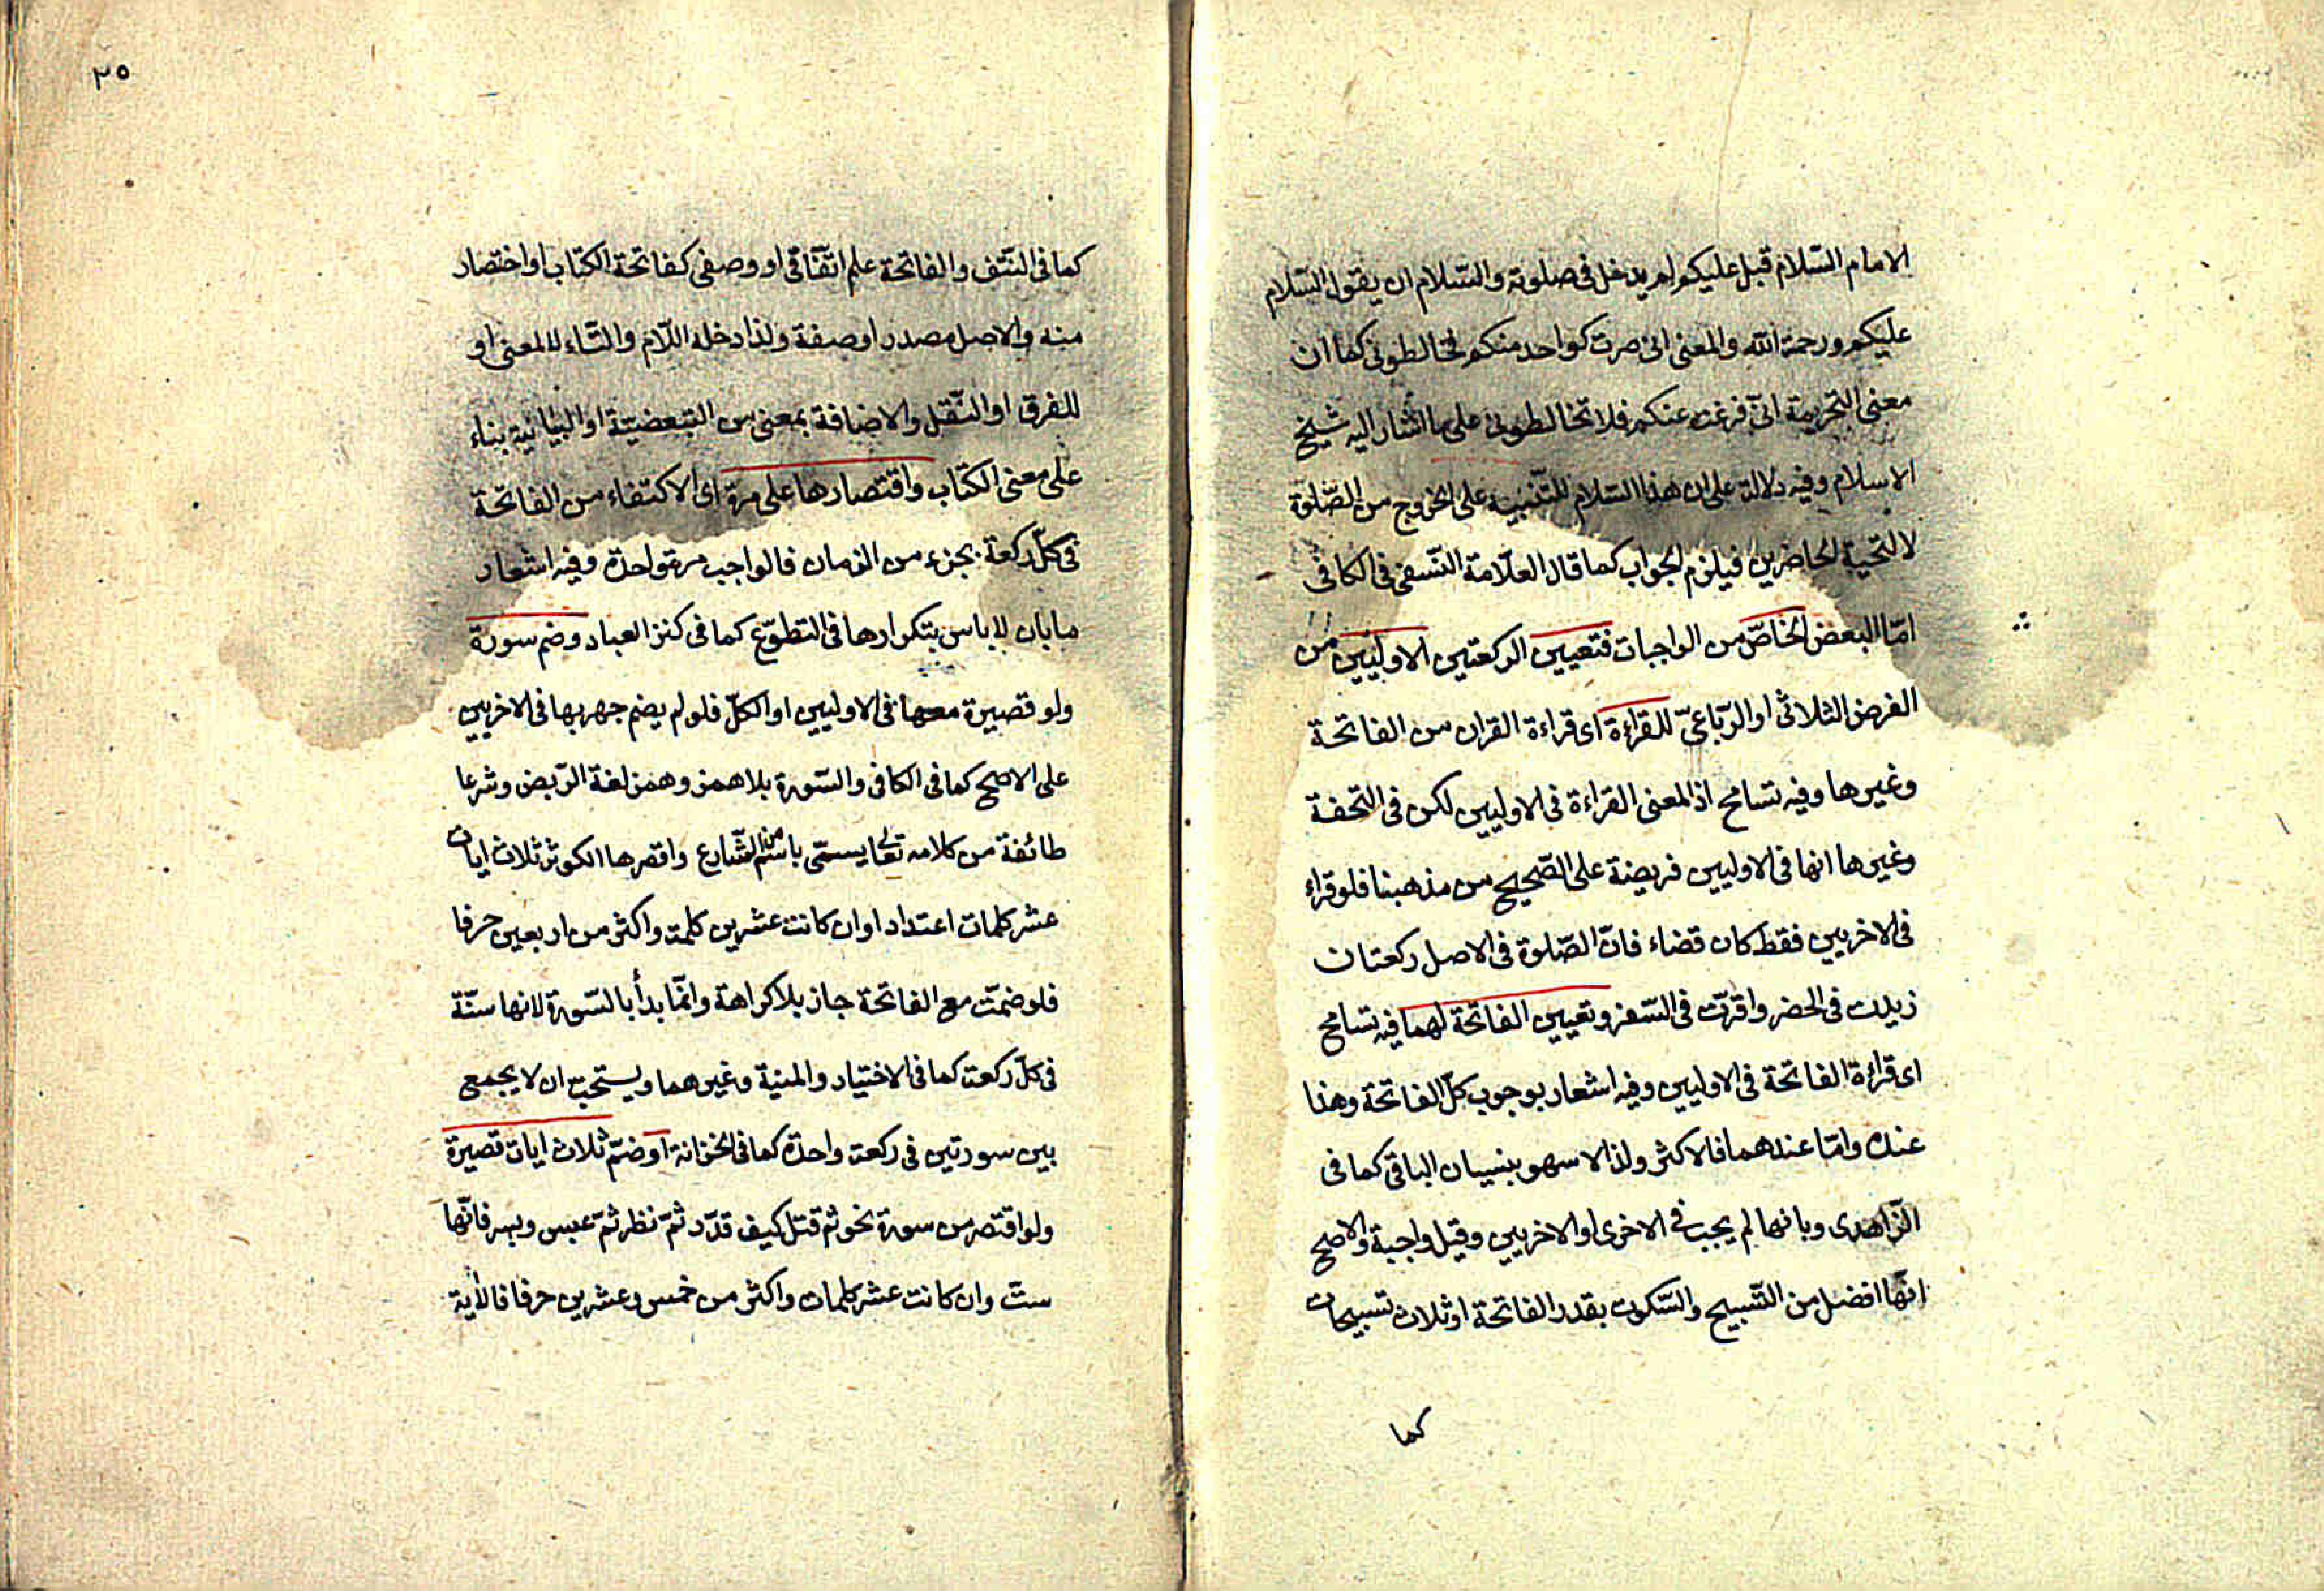 الامام السّلام قبل عليكم لم يدخل في صلوته والسّلام ان يقول السّلام
عليكم ورحمة الله والمعنى انى صرت كواحد منكم فخالطونى كما ان
معنى التحريمة انى فرغت عنكم فلا تخالطونى على ما اشار اليه شيخ
الاسلام وفيه دلالة على ان هذا السّلام للتّنبيه على الخروج من الصّلوة
لا لتحية الحاضرين فيلزم الجواب كما قال العلّامة النّسفى فى الكافى
امّا البعض الخاصّ من الواجبات فتعيين الركعتين الاوليين من
الفرض الثلاثى او الرّباعىّ للقراءة اى قراءة القران من الفاتحة
وغيرها وفيه تسامح اذ المعنى القراءة فى الاوليين لكن فى التحفة
وغيرها انها فى الاوليين فريضة على الصّحيح من مذهبنا فلو قراء
فى الاخريين فقط كان قضاء فانّ الصّلوة فى الاصل ركعتان
زيدت فى الحضر واقرّت فى السّفر وتعيين الفاتحة لهما فيه تسامح
اى قراءة الفاتحة فى الاوليين وفيه اشعار بوجوب كلّ الفاتحة وهذا
عنده وامّا عندهما فالاكثر ولذا لا سهو بنسيان الباقى كما فى
الزّاهدى وبانها لم يجب فى الاخرى او الاخريين وقيل واجبة والاصح
انّها افضل من التّسبيح والسّكوت بقدر الفاتحة او ثلاث تسبيحات
كما
٣٥
كما فى النتف والفاتحة علم اتّفاقى او وصفى كفاتحة الكتاب او اختصار
منه والاصل مصدر او صفة ولذا دخله اللّام والتّاء للمعنى او
للفرق او النّقل والاضافة بمعنى من التبعضيّة او البيانية بناء
على معنى الكتاب واقتصارها على مرة اى الاكتفاء من الفاتحة
فى كلّ ركعة بجزء من الزمان فالواجب مرة واحدة وفيه اشعار
ما بان لا باس بتكرارها فى التطوّع كما فى كنز العباد وضم سورة
ولو قصيرة معها فى الاوليين او الكلّ فلو لم يضم جهر بها فى الاخريين
على الاصح كما فى الكافى والسّورة بلا همز وهمز لغة الرّبض وشرعا
طائفة من كلامه تعا يسمّى باسم من الشّارع واقصرها الكوثر ثلاث ايات
عشر كلمات اعتدادا وان كانت عشرين كلمة واكثر من اربعين حرفا
فلو ضمّت مع الفاتحة جاز بلا كراهة وانمّا بدأ بالسّورة لانها سنّة
فى كلّ ركعة كما فى الاختيار والمنية وغيرهما ويستحب ان لا يجمع
بين سورتين فى ركعة واحدة كما فى الخزانة او ضمّ ثلاث ايات قصيرة
ولو اقتصر من سورة نحو ثم قتل كيف قدّر ثمّ نظر ثمّ عبس وبسر فانّها
ستّ وان كانت عشر كلمات واكثر من خمس وعشرين حرفا فالآية